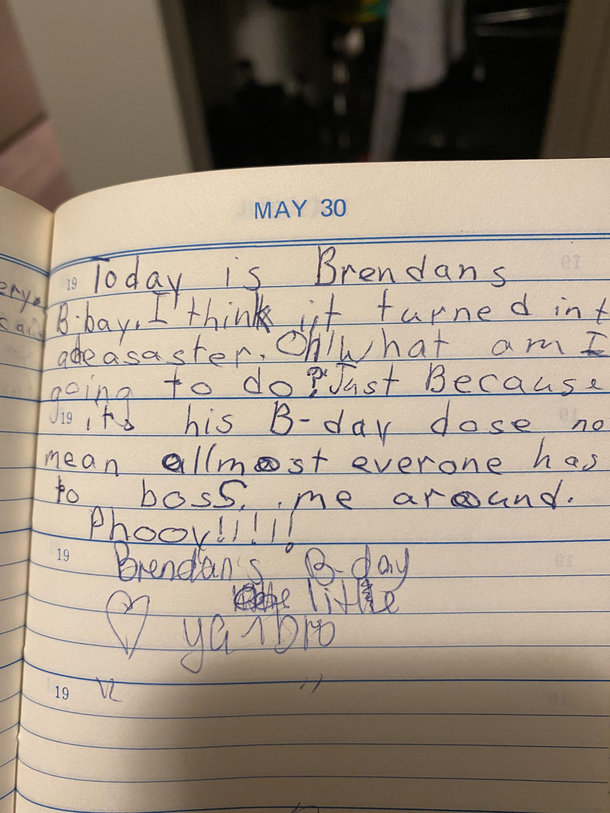 MAY 30
19 Today is Brendans
B-bay, I think it turned int
a deasaster. Oh! What am I
going to do? Just Because
19 its his B-day dose no
mean allmost everone has
to boss me around.
Phooy!!!!!
19 Brendan's B-day
little
ya bro
19